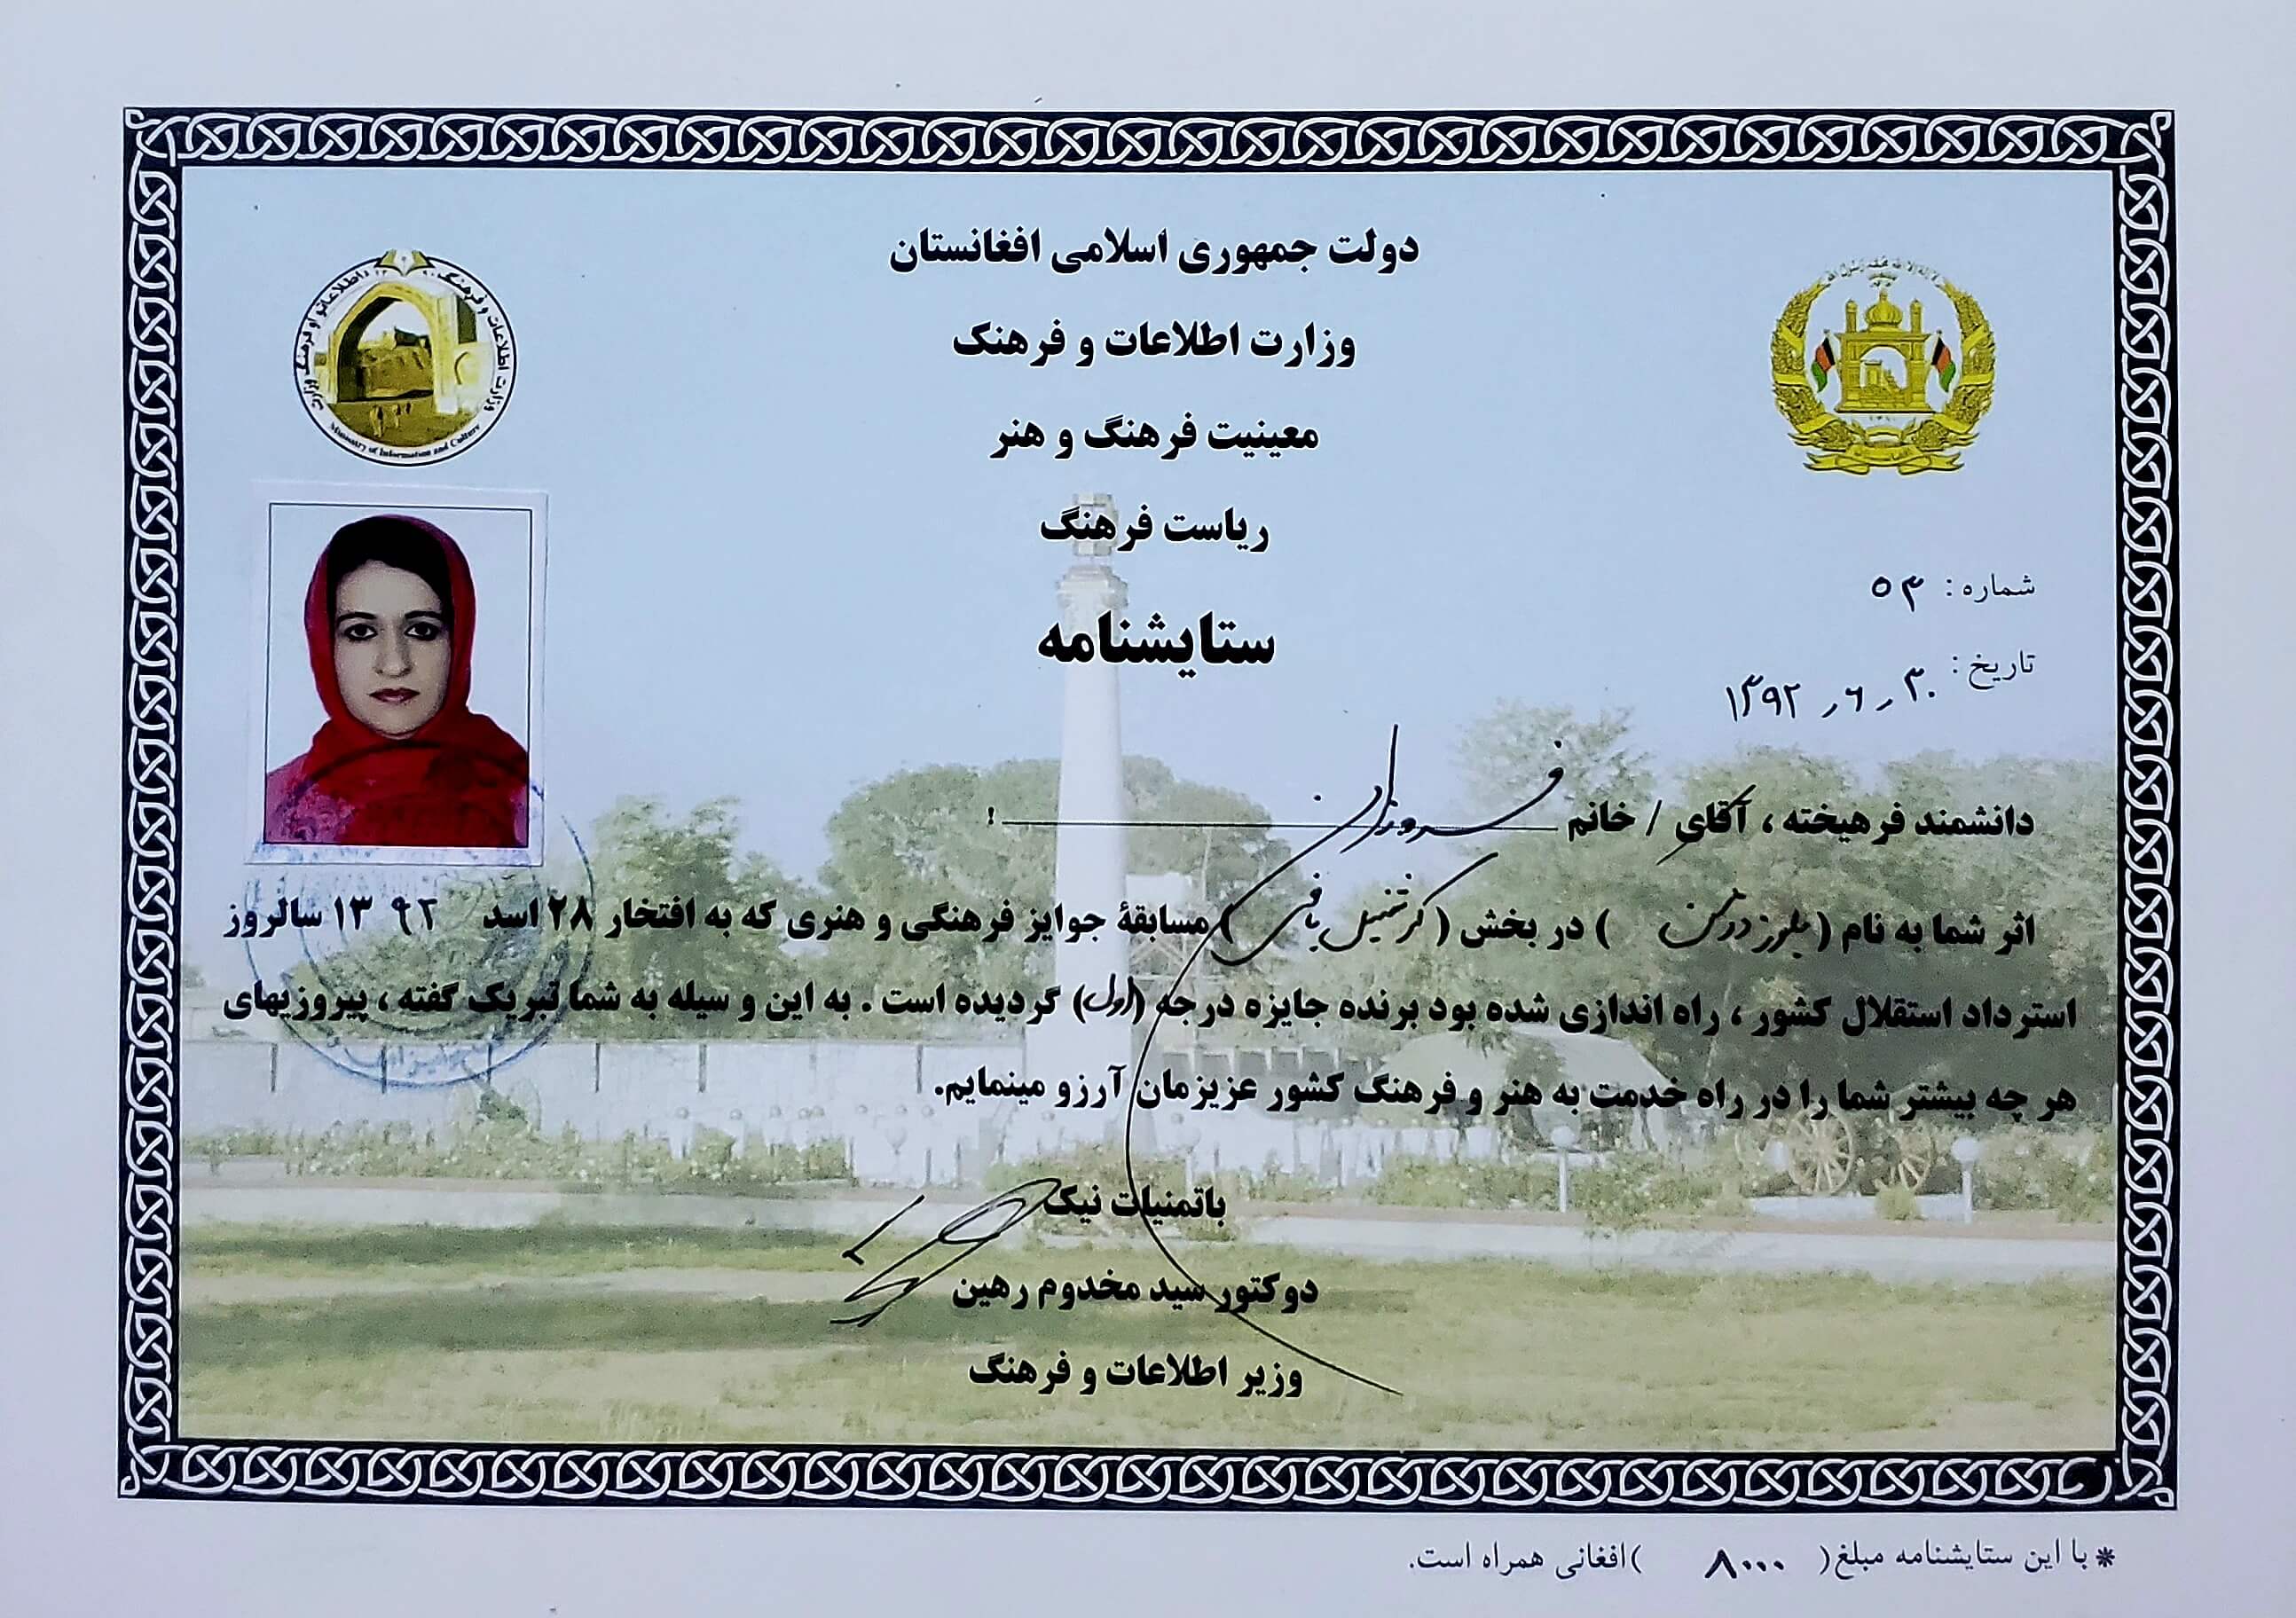 دولت جمهوری اسلامی افغانستان
وزارت اطلاعات و فرهنگ
معینیت فرهنگ و هنر
ریاست فرهنگ
ستایشنامه
وزارت اطلاعات و فرهنگ
Ministry of Information and Culture
شماره: ۵۳
تاریخ: ۳۰ ر ۶ ر ۱۳۹۲
دانشمند فرهیخته ، آقای / خانم فروزان !
اثر شما به نام ( ) در بخش (کرشنیل بافی) مسابقهٔ جوایز فرهنگی و هنری که به افتخار ۲۸ اسد ۱۳۹۲ سالروز
استرداد استقلال کشور ، راه اندازی شده بود برنده جایزه درجه (اول) گردیده است . به این و سیله به شما تبریک گفته ، پیروزیهای
هر چه بیشتر شما را در راه خدمت به هنر و فرهنگ کشور عزیزمان آرزو مینمایم.
باتمنیات نیک
دوکتور سید مخدوم رهین
وزیر اطلاعات و فرهنگ
* با این ستایشنامه مبلغ( ۸۰۰۰ )افغانی همراه است.